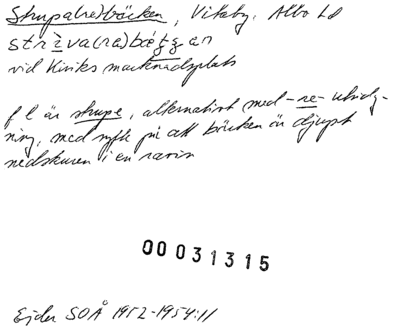 Strupa(re)bäcken, Vitaby, Albo hd
vid Kiviks marknadsplats
f l är strupe, alternativt med -re- utvidg-
ning, med syfte på att bäcken är djupt
nedskuren i en ravin
00031315
Ejder SOÅ 1952-1954:11